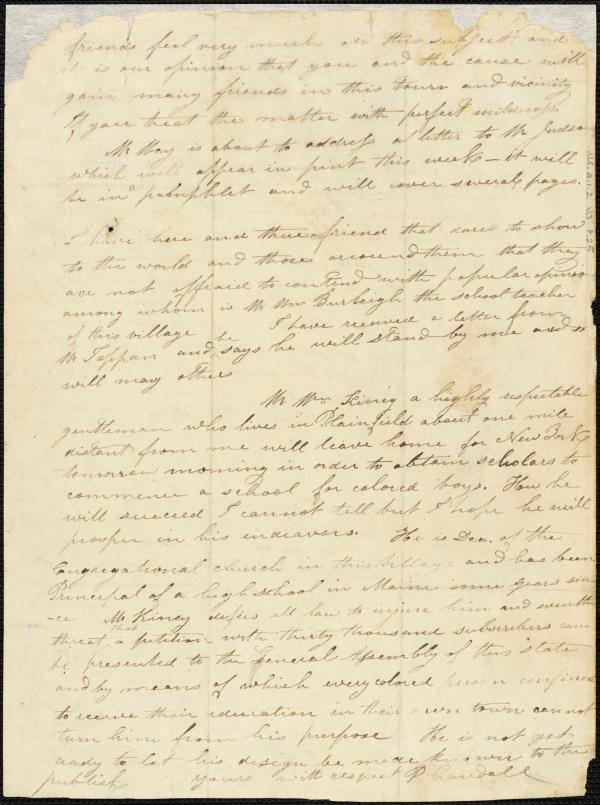 friends feel very much on this subject and
it is our opinion that you and the cause will
gain many friends in this town and vicinity
If you treat the matter with perfect mildness
Mr May is about to address a letter to Mr Judson
which will appear in print this week – it will
be in pamphlet and will cover several pages.
I have here and there a friend that dare to show
to the world and those around them that they
are not affraid to contend with popular opinion
among whom is Mr Wm Burleigh the school teacher
of this village I have received a letter from
Mr Tappan and he says he will stand by me and so
will many others
Mr Wm Kincy a highly respectable
gentleman who lives in Plainfield about one mile
distant from me will leave home for New York
tomorrow morning in order to obtain scholars to
commence a school for colored boys. How he
will succeed I cannot tell but I hope he will
prosper in his endeavors. He is Dea. of the
Congregational church in this village and has been
Principal of a high school in Maine some years sin-
-ce Mr Kincy defies all law to injure him and even the
threat that a petition with thirty thousand subscribers can
be presented to the General Assembly of this state
and by means of which every colored person confined
to receive their education in their own town can not
turn him from his purpose He is not yet
ready to let his design be made known to the
publick yours with respect P Crandall